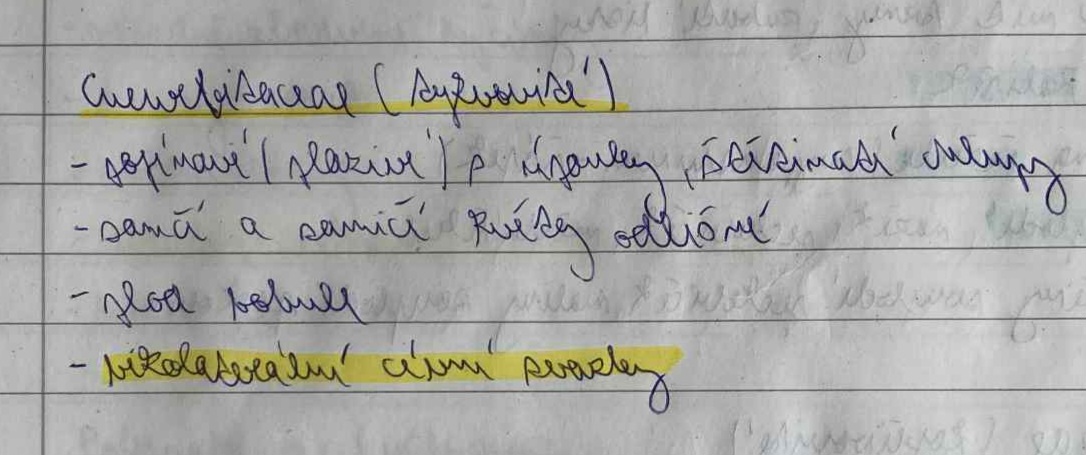 Cucurbitaceae (tykvovité)
- popínavé/plazivé/s úponky, štětinaté chlupy
- samčí a samičí květy odlišné
- plod bobule
- bikolaterální cévní svazky